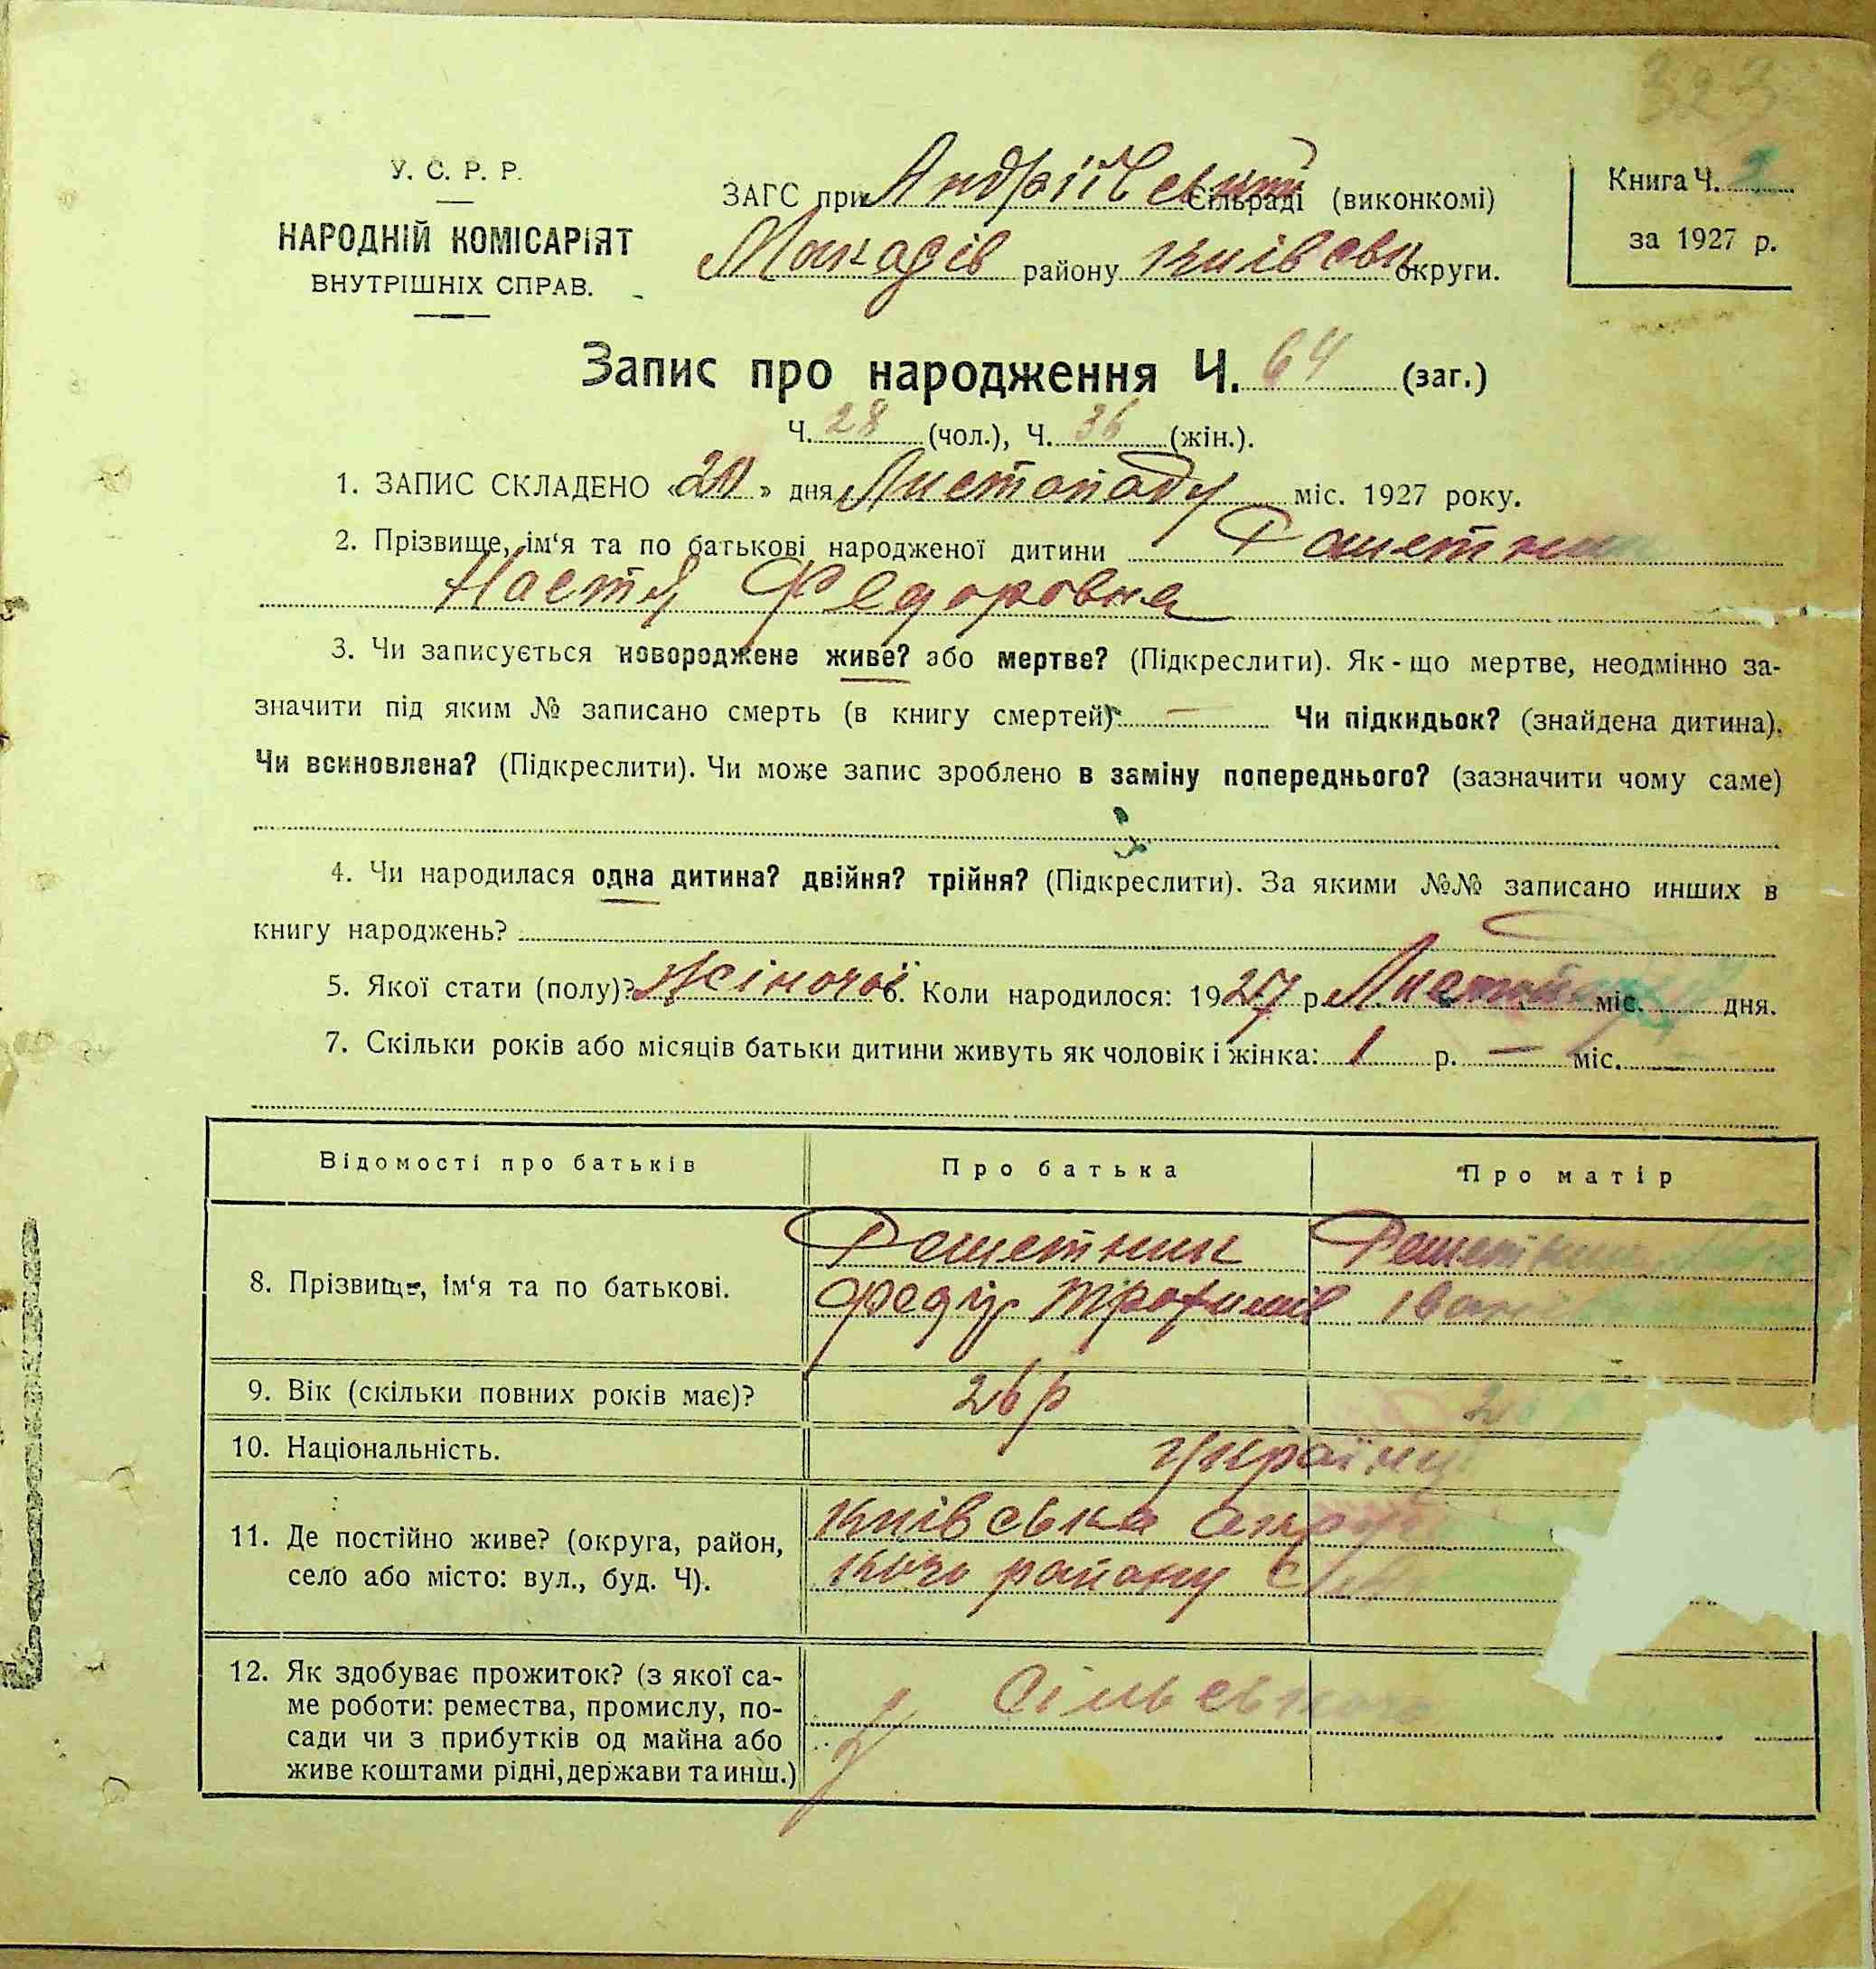 323
У. С. Р. Р.
НАРОДНІЙ КОМІСАРІЯТ
ВНУТРІШНІХ СПРАВ.
ЗАГС при Андріївській Сільраді (виконкомі)
Макарів району Київськ округи.
Книга Ч.
за 1927 р.
Запис про народження Ч. 64 (заг.)
Ч. 28 (чол.), Ч. 36 (жін.).
1. ЗАПИС СКЛАДЕНО «20» дня Листопаду міс. 1927 року.
2. Прізвище, ім‘я та по батькові народженої дитини Решетник
Настя Федоровна
3. Чи записується новороджене живе? або мертве? (Підкреслити). Як-що мертве, неодмінно за-
значити під яким № записано смерть (в книгу смертей) — Чи підкидьок? (знайдена дитина).
Чи всиновлена? (Підкреслити). Чи може запис зроблено в заміну попереднього? (зазначити чому саме)
4. Чи народилася одна дитина? двійня? трійня? (Підкреслити). За якими №№ записано инших в
книгу народжень?
5. Якої стати (полу)? Жіночої 6. Коли народилося: 1927 р. Листопаду міс. дня.
7. Скільки років або місяців батьки дитини живуть як чоловік і жінка: 1 р. — міс.
Відомості про батьків
Про батька
Про матір
8. Прізвище, ім‘я та по батькові.
Решетник
Федір Трохимів
Решетник
Іван
9. Вік (скільки повних років має)?
26 р
10. Національність.
Українці
11. Де постійно живе? (округа, район,
село або місто: вул., буд. Ч).
Київська округа
району
12. Як здобуває прожиток? (з якої са-
ме роботи: ремества, промислу, по-
сади чи з прибутків од майна або
живе коштами рідні, держави та инш.)
Сільського